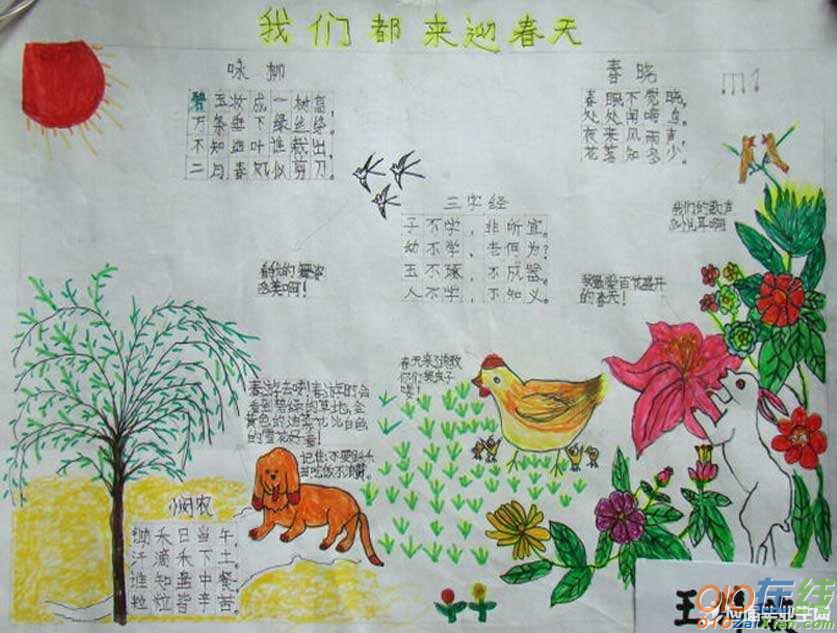 我们都来迎春天
咏柳
碧玉妆成一树高，
万条垂下绿丝绦。
不知细叶谁裁出，
二月春风似剪刀。
春晓
春眠不觉晓，
处处闻啼鸟。
夜来风雨声，
花落知多少。
三字经
子不学，非所宜。
幼不学，老何为？
玉不琢，不成器。
人不学，不知义。
我们的歌声
多悦耳啊
我最爱百花盛开
的春天！
春天来了
春游去喽！春游时会
看到碧绿的草地，金
黄色的油菜花
悯农
锄禾日当午，
汗滴禾下土。
谁知盘中餐
粒粒皆辛苦。
王
910在线
910zaixian.com